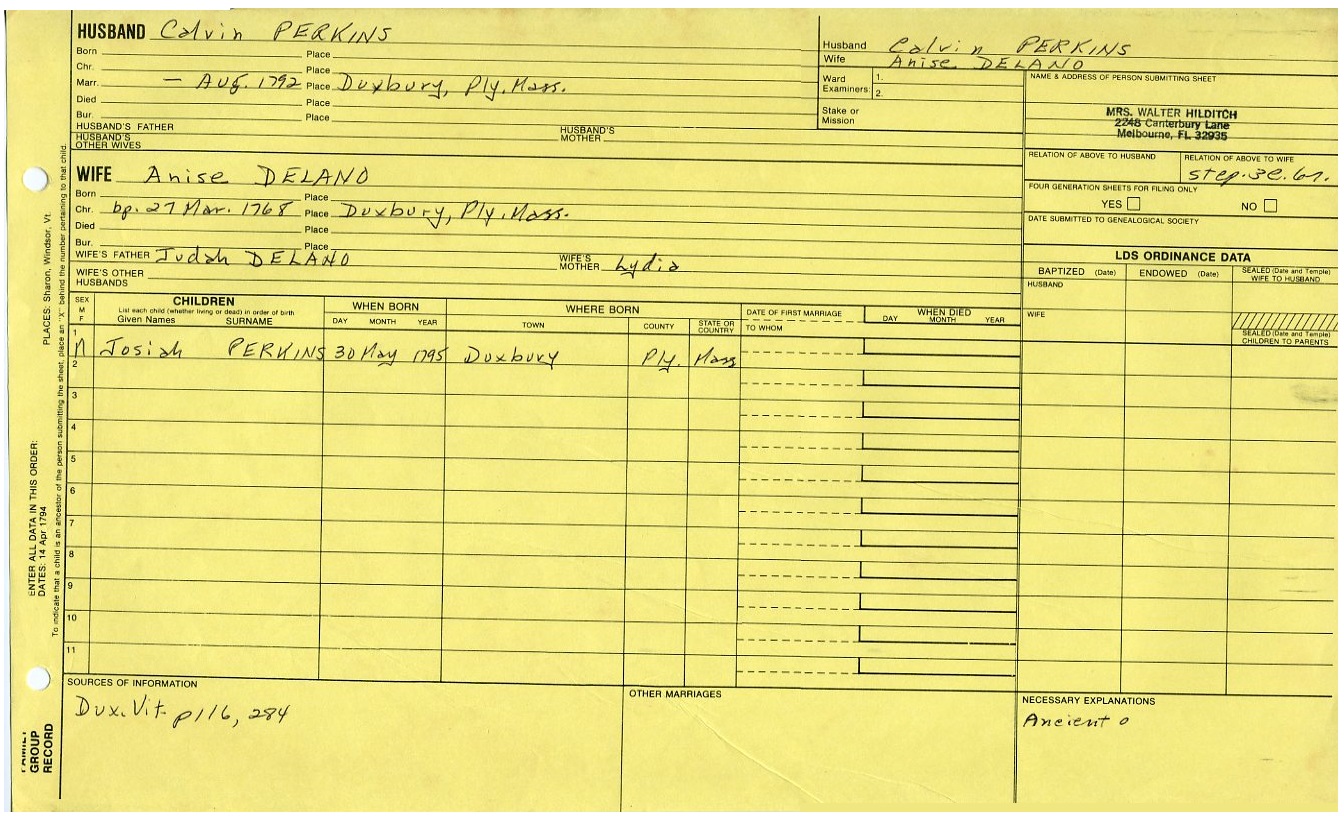 HUSBAND Calvin PERKINS
Born Place
Chr. Place
Marr. — Aug. 1792 Place Duxbury, Ply. Mass.
Died Place
Bur. Place
HUSBAND'S FATHER HUSBAND'S MOTHER
HUSBAND'S OTHER WIVES
Husband Calvin PERKINS
Wife Anise DELANO
Ward Examiners: 1. 2.
Stake or Mission
NAME & ADDRESS OF PERSON SUBMITTING SHEET
MRS. WALTER HILDITCH
2248 Canterbury Lane
Melbourne, FL 32935
RELATION OF ABOVE TO HUSBAND RELATION OF ABOVE TO WIFE
step. 3c. 6r.
FOUR GENERATION SHEETS FOR FILING ONLY
YES NO
DATE SUBMITTED TO GENEALOGICAL SOCIETY
WIFE Anise DELANO
Born Place
Chr. bp. 27 Mar. 1768 Place Duxbury, Ply. Mass.
Died Place
Bur. Place
WIFE'S FATHER Judah DELANO WIFE'S MOTHER Lydia
WIFE'S OTHER HUSBANDS
LDS ORDINANCE DATA
BAPTIZED (Date) ENDOWED (Date) SEALED (Date and Temple) WIFE TO HUSBAND
HUSBAND
WIFE
SEALED (Date and Temple) CHILDREN TO PARENTS
SEX M F
CHILDREN
List each child (whether living or dead) in order of birth
Given Names SURNAME
WHEN BORN
DAY MONTH YEAR
WHERE BORN
TOWN COUNTY STATE OR COUNTRY
DATE OF FIRST MARRIAGE
TO WHOM
WHEN DIED
DAY MONTH YEAR
1
M Josiah PERKINS 30 May 1795 Duxbury Ply. Mass
2
3
4
5
6
7
8
9
10
11
SOURCES OF INFORMATION
Dux. Vit. p116, 284
OTHER MARRIAGES
NECESSARY EXPLANATIONS
Ancient o
ENTER ALL DATA IN THIS ORDER:
DATES: 14 Apr 1794 PLACES: Sharon, Windsor, Vt.
To indicate that a child is an ancestor of the person submitting the sheet, place an "X" behind the number pertaining to that child.
FAMILY
GROUP
RECORD